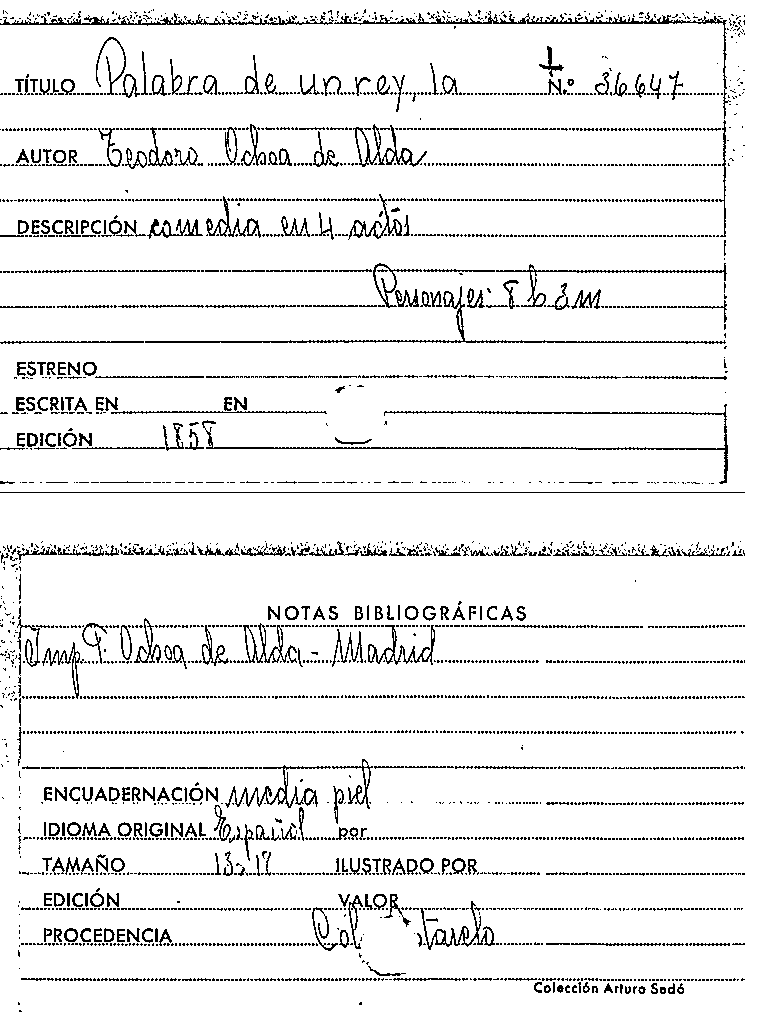 TÍTULO Palabra de un rey, la N.º 36647
AUTOR Teodoro Ochoa de Alda
DESCRIPCIÓN comedia en 4 actos
Personajes: 8 h 3 m
ESTRENO
ESCRITA EN EN
EDICIÓN 1858
NOTAS BIBLIOGRÁFICAS
Imp. T. Ochoa de Alda - Madrid
ENCUADERNACIÓN media piel
IDIOMA ORIGINAL Español por
TAMAÑO ILUSTRADO POR
EDICIÓN VALOR
PROCEDENCIA Col
Colección Arturo Sedó